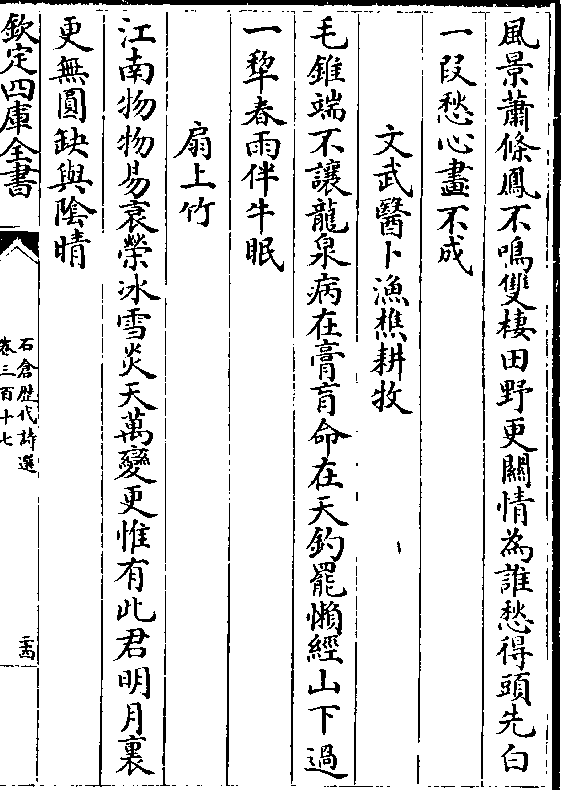 風景蕭條鳳不鳴雙棲田野更關情為誰愁得頭先白
一段愁心畫不成
文武醫卜漁樵耕牧
毛錐端不讓龍泉病在膏肓命在天釣罷懶經山下過
一犂春雨伴牛眠
扇上竹
江南物物易衰榮冰雪炎天萬變更惟有此君明月裏
更無圓缺與陰晴
欽定四庫全書
石倉歷代詩選
卷三百十七